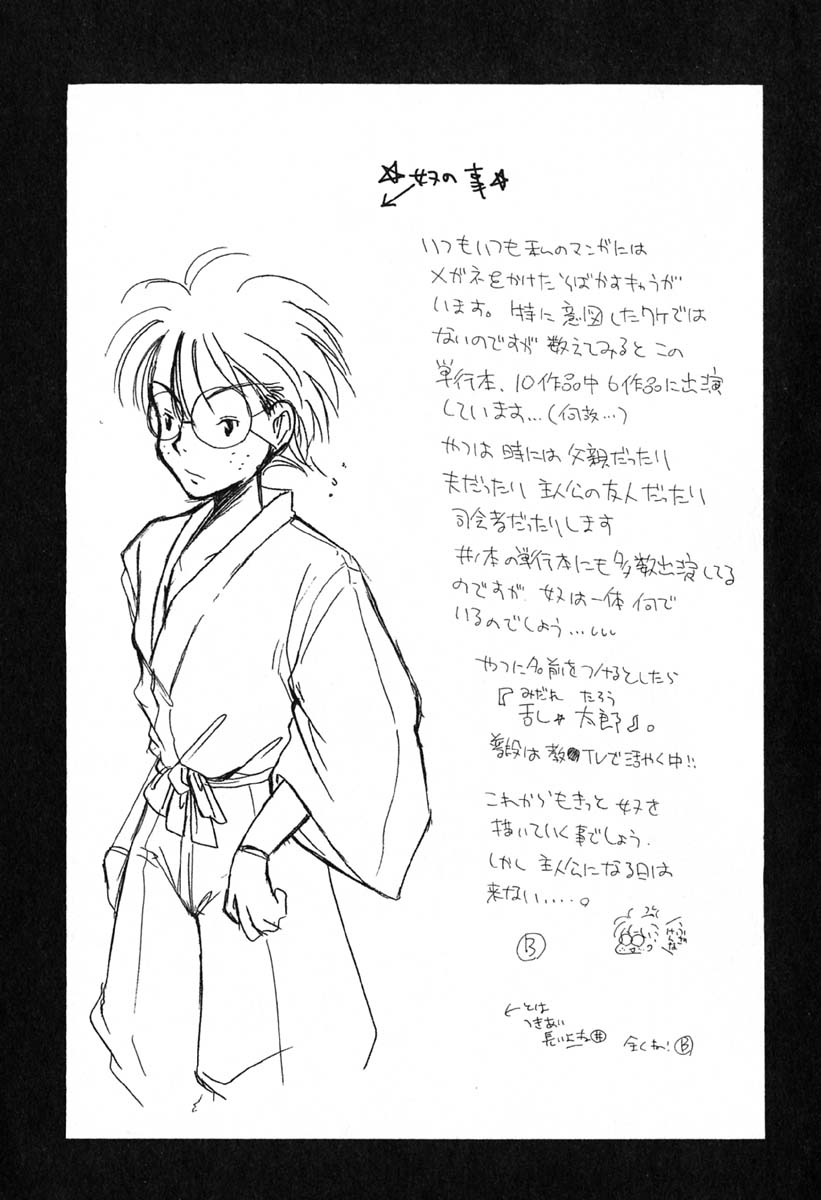 ☆奴の事☆
いつもいつも私のマンガには
メガネをかけたそばかすきゃらが
います。特に意図したワケでは
ないのですが数えてみるとこの
単行本、10作品中6作品に出演
しています…(何故…)
やつは時には父親だったり
夫だったり主人公の友人だったり
司会者だったりします
#1本の単行本にも多数出演してる
のですが、奴は一体何で
いるのでしょう…
やつに名前をつけるとしたら
みだれ たろう
『乱レ 太郎』。
普段は教 TVで活やく中!!
これからもきっと奴を
描いていく事でしょう。
しかし主人公になる日は
来ない.....。
B
ふざ
けんな
←とは
つきあい
長いよね#
全くね!B